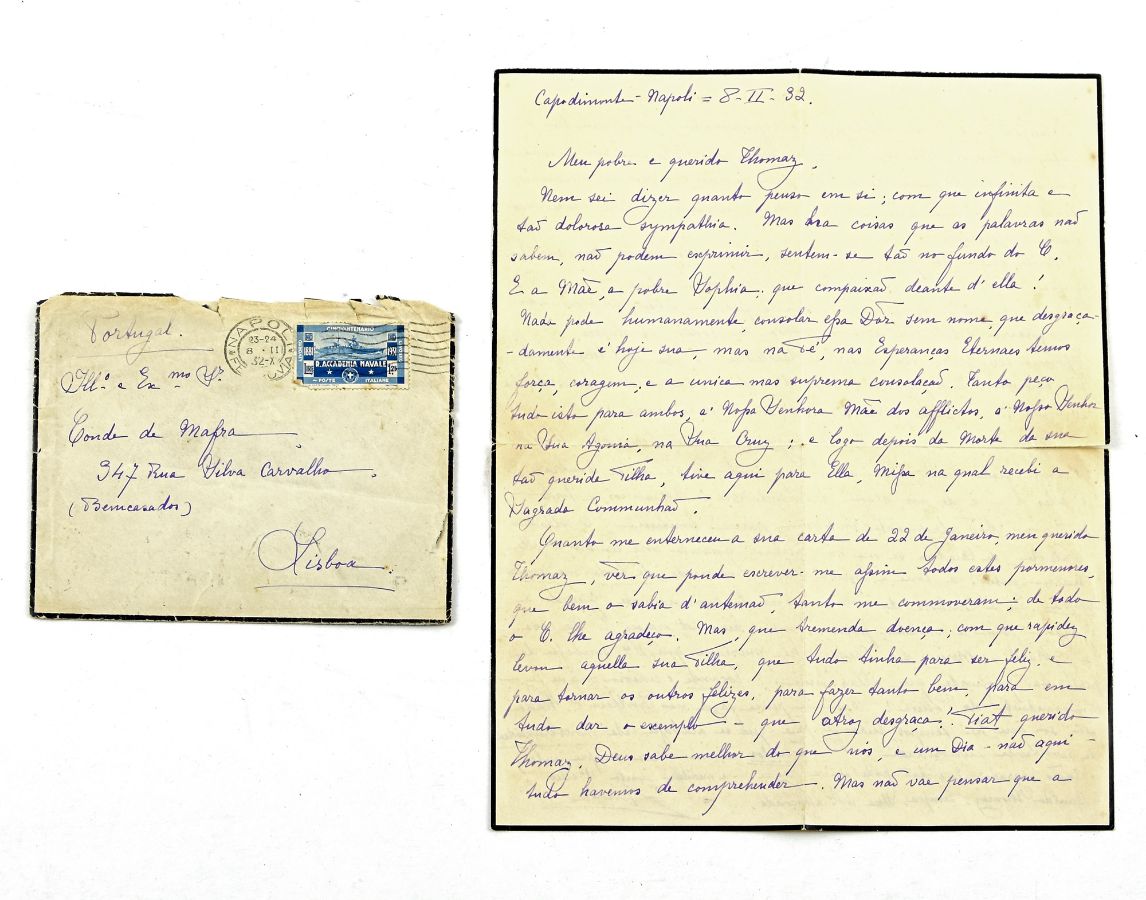 Portugal.
Ill.º e Ex.mo Sr.
Conde de Mafra
347 Rua Silva Carvalho
(Bemcasados)
Lisboa.
NAPOLI
23-24
8 · II
32-X
CINQUANTENARIO
1881 1931
R. ACCADEMIA NAVALE
POSTE ITALIANE
Capodimonte - Napoli = 8-II-32.
Meu pobre e querido Thomaz,
Nem sei dizer quanto penso em si; com que infinita e
taõ dolorosa sympathia. Mas ha coisas que as palavras naõ
sabem, naõ podem exprimir, sentem-se taõ no fundo do C.
E a Mãe, a pobre Sophia, que compaixaõ deante d'ella!
Nada pode humanamente, consolar essa Dôr sem nome, que desgraça-
-damente é hoje sua, mas na Fé, nas Esperanças Eternaes temos
força, coragem, e a unica mas suprema consolaçaõ. Tanto peço
tudo isto para ambos, á Nossa Senhora Mãe dos afflictos, á Nosso Senhor
na Sua Agonia, na Sua Cruz; e logo depois da Morte da sua
taõ querida Filha, tive aqui para Ella, Missa na qual recebi a
Sagrada Communhaõ.
Quanto me enterneceu a sua carta de 22 de Janeiro, meu querido
Thomaz, ver que poude escrever-me assim todos estes pormenores,
que bem o sabia d'antemaõ, tanto me commoveram; de todo
o C. lhe agradeço. Mas, que tremenda doença; com que rapidez
levou aquella sua Filha, que tudo tinha para ser feliz, e
para tornar os outros felizes, para fazer tanto bem, para em
tudo dar o exemplo - que atroz desgraça! Fiat querido
Thomaz, Deus sabe melhor do que nós, e um Dia - naõ aqui -
tudo havemos de comprehender. Mas naõ vae pensar que a